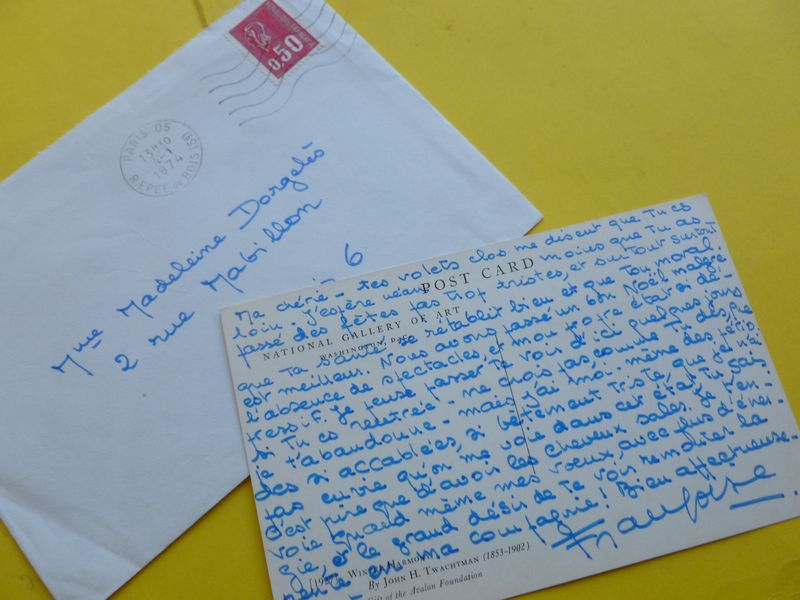 0,50
PARIS 05
13H30
4-1
1974
R.EPEE DE BOIS (5e)
Mme Madeleine Dorgelès
2 rue Mabillon
6
POST CARD
NATIONAL GALLERY OF ART
WASHINGTON, D.C.
Ma chérie - tes volets clos me disent que tu es
loin. J'espère néanmoins que tu as
passé des fêtes pas trop tristes, et surtout surtout
que ta santé se rétablit bien et que ton moral
est meilleur. Nous avons passé un bon Noël malgré
l'absence de spectacles, et mon
état si dé-
pressif. Je pense passer te voir d'ici quelques jours
si tu es rentrée - ne crois pas comme tu dis, que
je t'abandonne - mais j'ai moi-même des pério-
des si accablées, si bêtement tristes, que je n'ai
pas envie qu'on me voie dans cet état. Tu sais
c'est pire que d'avoir les cheveux sales. Je t'en-
voie quand même mes voeux, avec plus d'éner-
gie, et le grand désir de te voir remonter la
pente en ma compagnie! Bien affectueuse-
Françoise
WINTER HARMONY
By JOHN H. TWACHTMAN (1853-1902)
Gift of the Avalon Foundation